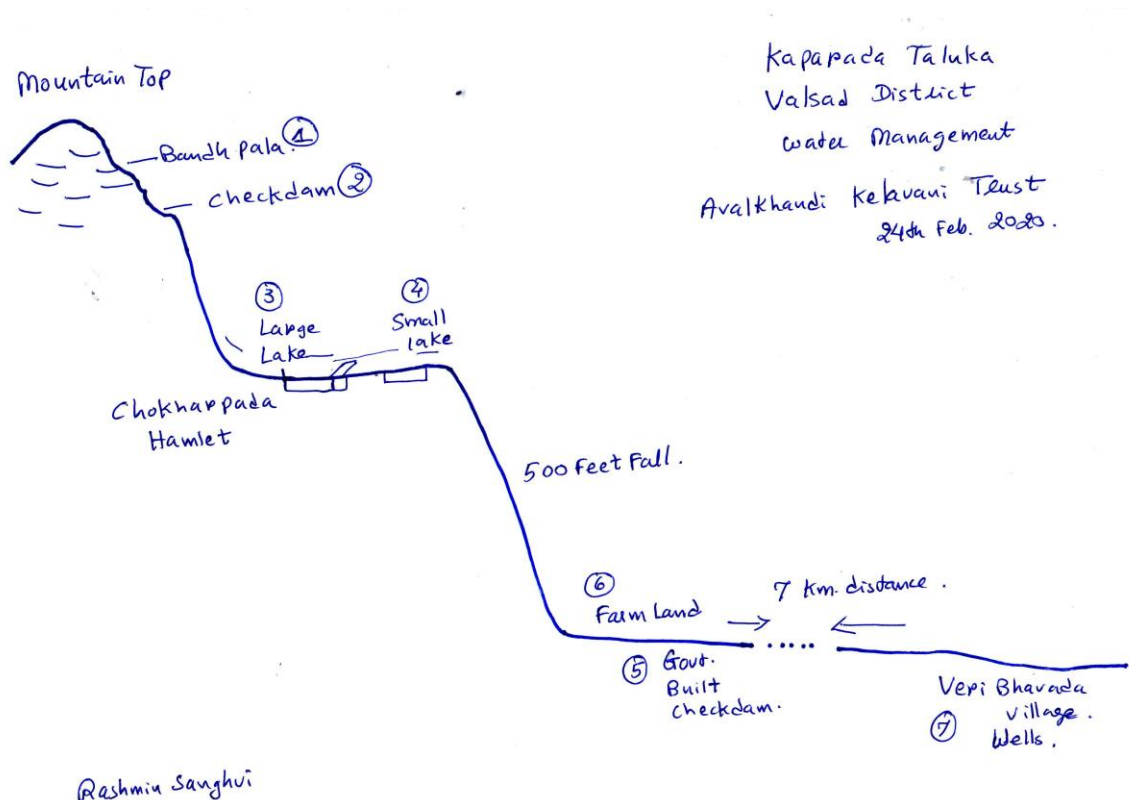 Mountain Top
Kaparada Taluka
Valsad District
water Management
Avalkhandi Kelavani Trust
24th Feb. 2020.
Bandh pala. 1
checkdam 2
3
Large
Lake
4
Small
lake
Chokharpada
Hamlet
500 Feet Fall.
6
Farm Land
7 km. distance.
5 Govt.
Built
checkdam.
Veri Bhavada
village.
7 Wells.
Rashmin Sanghvi